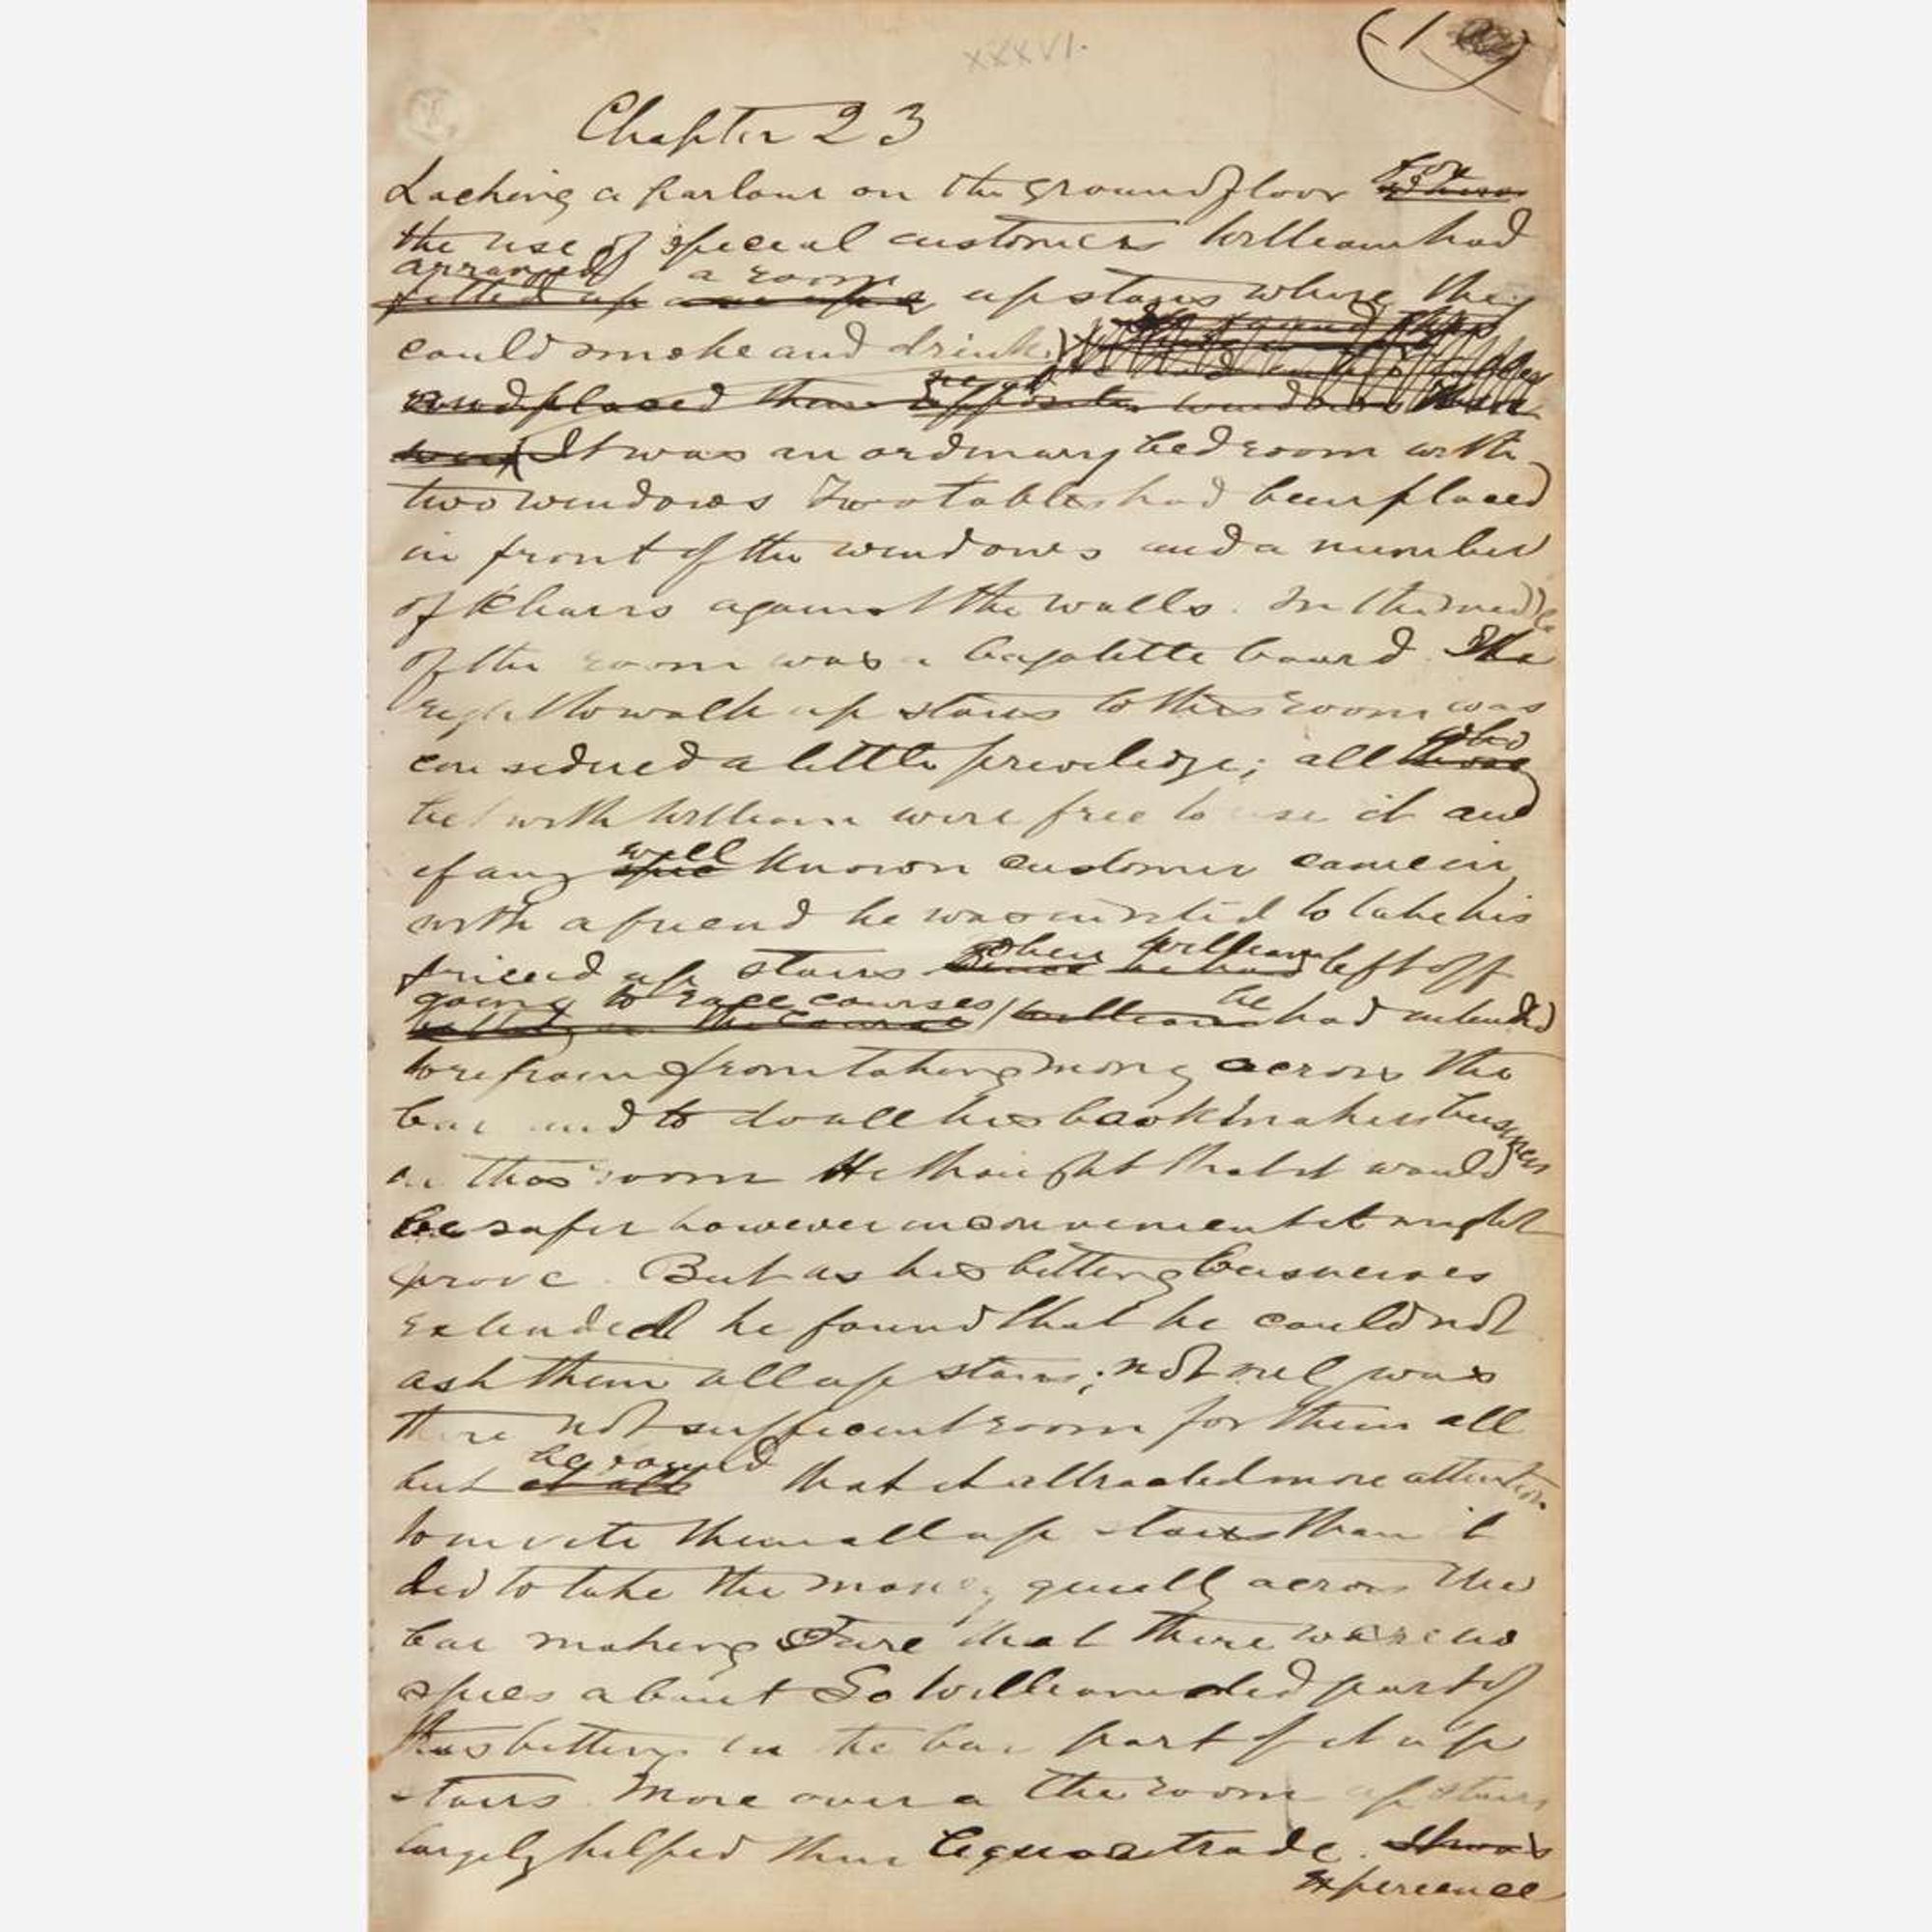 XXXVI.
1
Chapter 23
Lacking a parlour on the ground floor for
the use of special customers William had
arranged a room
fitted up upstairs where they
could smoke and drink.
and placed them opposite windows
near
It was an ordinary bedroom with
two windows Two tables had been placed
in front of the windows and a number
of Chairs against the walls. In the middle
of the room was a bagalitte board. The
right to walk up stairs to this room was
considered a little priviledge; all those
who
bet with William were free to use it and
well
if any known customer came in
with a friend he was invited to take his
friend up stairs when William left off
going to race courses he had intended
betting on the course William
to refrain from taking mony across the
bar and to do all his book makers business
in this room He thought that it would
be safer however inconvenient it might
prove. But as his betting businesses
extended he found that he could not
ask them all up stairs; not only was
there not sufficient room for them all
he found
but that it attracted more attention
to invite them all up stairs than it
did to take the money quietly across the
bar making sure that there were no
spies about So William did part of
his betting in the bar part of it up
stairs. More over a the room up stairs
largely helped their liquor trade. It was
experience